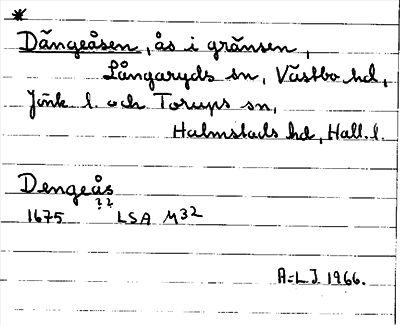 *
Dängeåsen, ås i gränsen,
Långaryds sn, Västbo hd,
Jönk. l. och Torups sn,
Halmstads hd, Hall. l.
Dengeås
??
1675 LSA M32
A-L J. 1966.